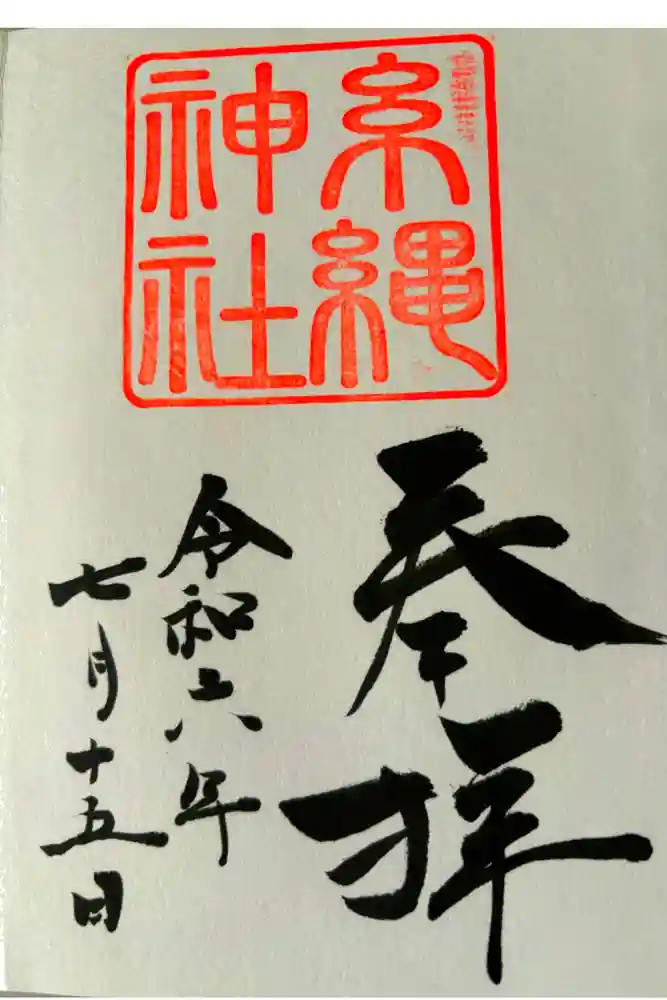 糸縄
神社
奉拝
令和六年
七月十五日